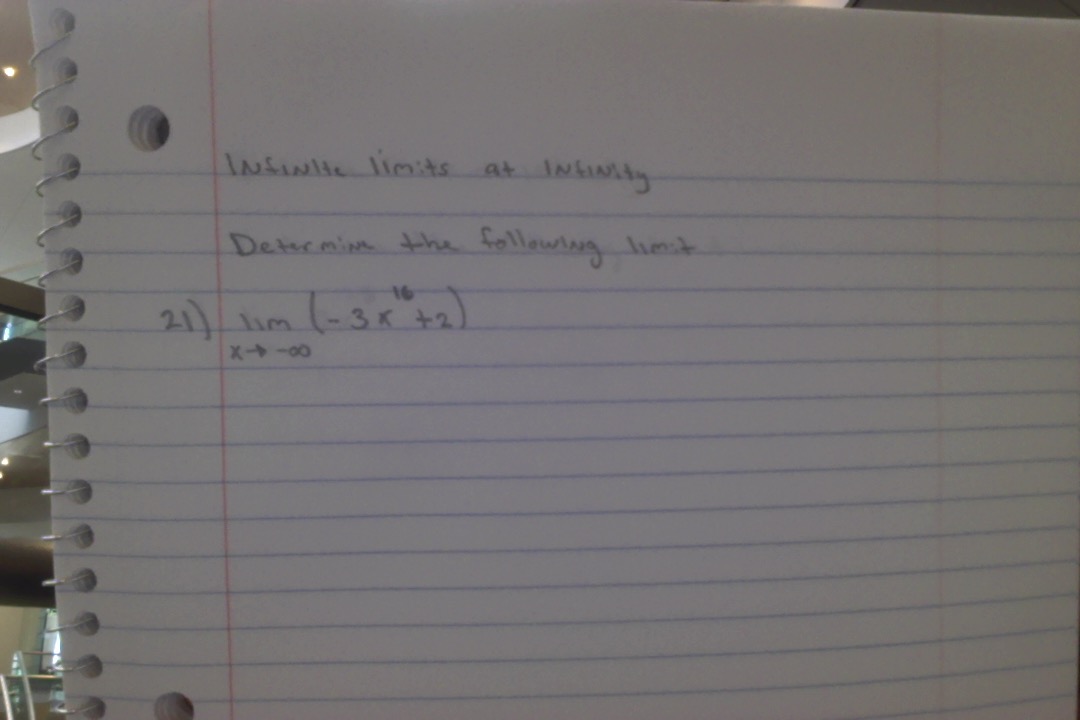 Infinite limits at infinity
Determine the following limit
21) lim (-3x^16 +2)
x→ -∞